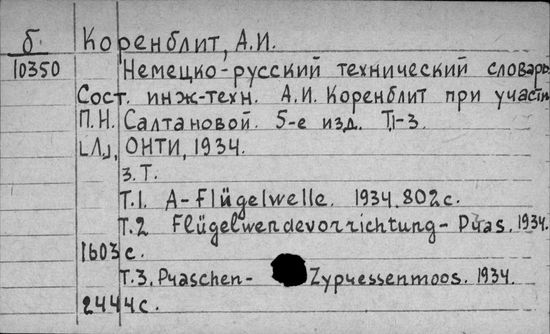 б. Коренблит, А.И.
10350 Немецко-русский технический словарь.
Сост. инж-техн. А.И. Коренблит при участи
П.Н. Салтановой. 5-е изд. Т.1-3.
[Л.], ОНТИ, 1934.
3.Т.
Т.1. А-Flügelwelle. 1934. 802с.
Т.2 Flügelwendevorrichtung- Pчas. 1934.
1603 с.
Т.3. Pчaschen- Zypчessenmoos. 1934.
2444с.